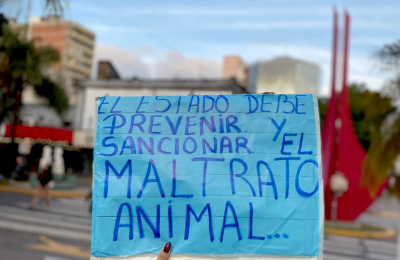 EL ESTADO DEBE
PREVENIR Y
SANCIONAR EL
MALTRATO
ANIMAL...